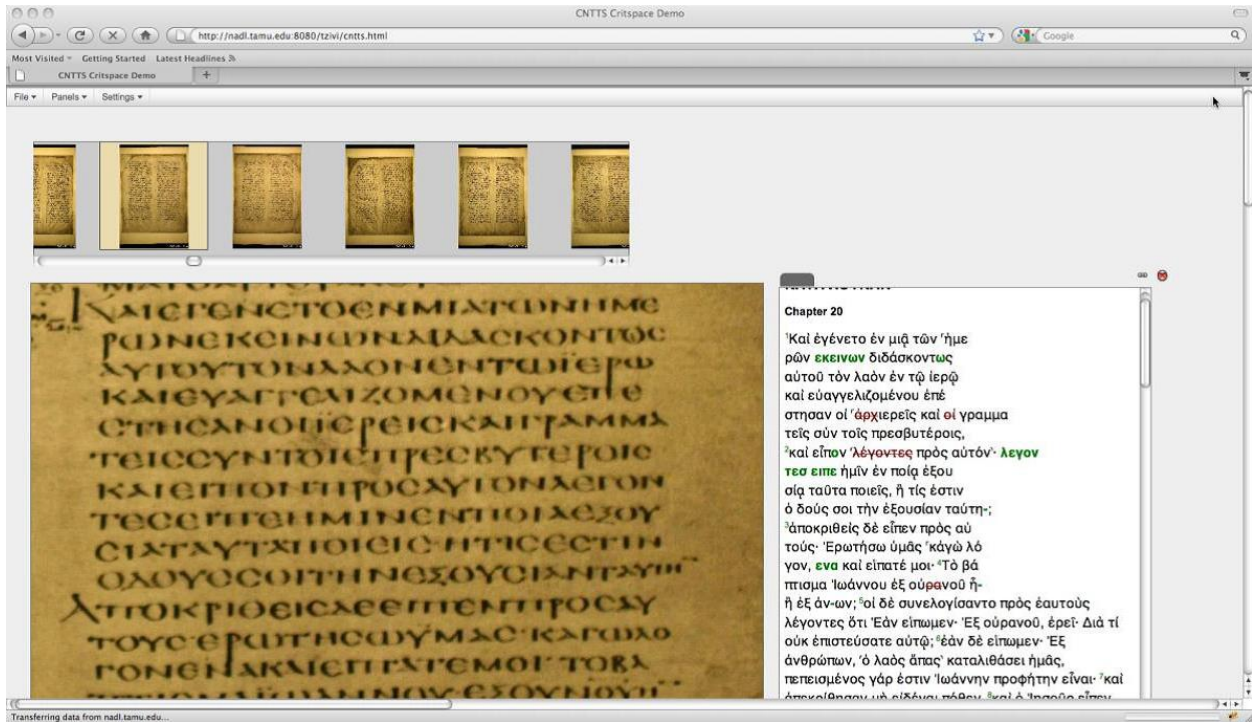 CNTTS Critspace Demo
http://nadl.tamu.edu:8080/tzivi/cntts.html
Google
Most Visited Getting Started Latest Headlines
CNTTS Critspace Demo
File Panels Settings
ΚΑΙΕΓΕΝΕΤΟΕΝΜΙΑΤΩΝΗΜΕ
ΡΩΝΕΚΕΙΝΩΝΔΙΔΑϹΚΟΝΤΩϹ
ΑΥΤΟΥΤΟΝΛΑΟΝΕΝΤΩΪΕΡΩ
ΚΑΙΕΥΑΓΓΕΛΙΖΟΜΕΝΟΥΕΠΕ
ϹΤΗϹΑΝΟΙΪΕΡΕΙϹΚΑΙΓΡΑΜΜΑ
ΤΕΙϹϹΥΝΤΟΙϹΠΡΕϹΒΥΤΕΡΟΙϹ
ΚΑΙΕΙΠΟΝΠΡΟϹΑΥΤΟΝΛΕΓΟΝ
ΤΕϹΕΙΠΕΗΜΙΝΕΝΠΟΙΑΕΞΟΥ
ϹΙΑΤΑΥΤΑΠΟΙΕΙϹ·ΗΤΙϹΕϹΤΙΝ
ΟΔΟΥϹϹΟΙΤΗΝΕΞΟΥϹΙΑΝΤΑΥΤΗ
ΑΠΟΚΡΙΘΕΙϹΔΕΕΙΠΕΝΠΡΟϹΑΥ
ΤΟΥϹ·ΕΡΩΤΗϹΩΫΜΑϹ·ΚΑΓΩΛΟ
ΓΟΝΕΝΑΚΑΙΕΙΠΑΤΕΜΟΙ·ΤΟΒΑ
Chapter 20
¹Καὶ ἐγένετο ἐν μιᾷ τῶν ʽἡμε
ρῶν εκεινων διδάσκοντως
αὐτοῦ τὸν λαὸν ἐν τῷ ἱερῷ
καὶ εὐαγγελιζομένου ἐπέ
στησαν οἱ ʽἀρχιερεῖς καὶ οἱ γραμμα
τεῖς σὺν τοῖς πρεσβυτέροις,
²καὶ εἶπον ʽλέγοντες πρὸς αὐτόνʼ· λεγον
τεσ ειπε ἡμῖν ἐν ποίᾳ ἐξου
σίᾳ ταῦτα ποιεῖς, ἢ τίς ἐστιν
ὁ δούς σοι τὴν ἐξουσίαν ταύτη-;
³ἀποκριθεὶς δὲ εἶπεν πρὸς αὐ
τούς· Ἐρωτήσω ὑμᾶς ʽκἀγὼ λό
γον, ενα καὶ εἴπατέ μοι· ⁴Τὸ βά
πτισμα Ἰωάννου ἐξ οὐρανοῦ ἦ-
ἢ ἐξ ἀν-ων; ⁵οἱ δὲ συνελογίσαντο πρὸς ἑαυτοὺς
λέγοντες ὅτι Ἐὰν εἴπωμεν· Ἐξ οὐρανοῦ, ἐρεῖ· Διὰ τί
οὐκ ἐπιστεύσατε αὐτῷ; ⁶ἐὰν δὲ εἴπωμεν· Ἐξ
ἀνθρώπων, ʽὁ λαὸς ἅπαςʼ καταλιθάσει ἡμᾶς,
πεπεισμένος γάρ ἐστιν Ἰωάννην προφήτην εἶναι· ⁷καὶ
ἀπεκρίθησαν μὴ εἰδέναι πόθεν. ⁸καὶ ὁ Ἰησοῦς εἶπεν
Transferring data from nadl.tamu.edu...